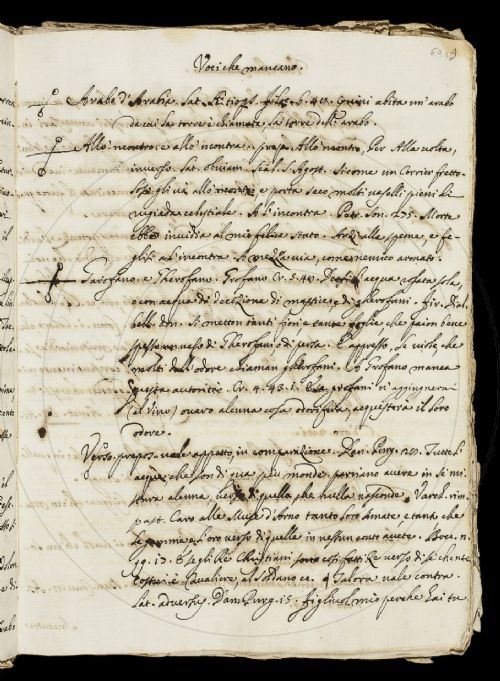 Voci che mancano.
Arabe d'Arabia. Lat. quivi abita un'arabo
da cui la torre è chiamata, la torre dell'arabo.
All'ncontro, e all'ncontra. prep. All'ncontro, Per Alla volta,
inverso. Lat. obviam. S. Agost. Si come un Corrier fretto-
loso gli và all' e porta seco molti vaselli pieni di
rugiada celestiale. All'incontra. Petr. Son. 275. Morte
ebbe invidia al mio felice stato. Anzi alla speme, e fe-
glisi all'incontra A mezza via, come nemico armato.
Garofano, e Gherofano. Grofano Cr. 5. acqua usata sola,
o con acqua di decozione di mastice, e di gherofani. Fir. Dial.
bell. don. A metton tanti fiori e tante foglie che paion bene
spesso un vaso di Gherofani o di persa. E appresso, le viole che
molti dall'odore chiaman gherofani. A Grofano manca
questa autorità. Cr. 4. 43. 1. si aggiugnerà
(il vino) ovvero alcuna cosa odorifera, acquisterà il loro
odore.
Verso. prepos. vale appetto, in comparazione. Dan. Purg. 28. Tutte l'
acque che son di qua più monde parrieno avere in se mi-
stura alcuna, verso di quella che nulla nasconde. Varch. rim.
past. Caro alle Muse d'Arno tanto loro Amate, e tant' che
le prime e loro verso di quelle in nessun conto avete. Bocc. n.
99. 13. E se gli Re Christiani sono così fatti Re verso di se chente
costui è Cavaliere al Soldano ec. Talora vale contra.
Lat. adversus. Dan. Purg. 15. Figliuol mio perche hai tu